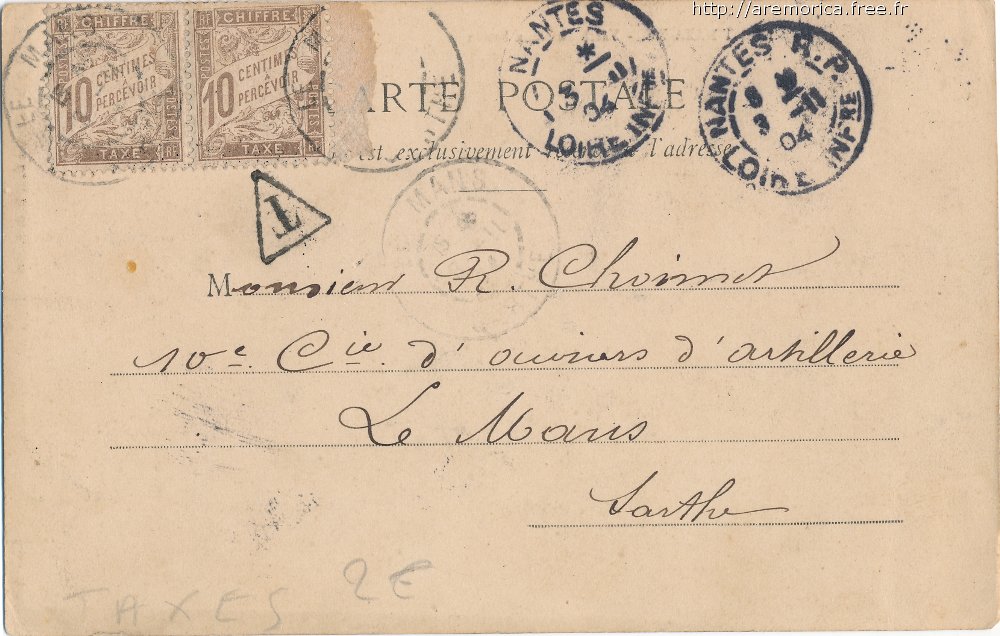 http://aremorica.free.fr
CHIFFRE CHIFFRE
POSTES POSTES
10 CENTIMES À PERCEVOIR 10 CENTIMES À PERCEVOIR
TAXE TAXE
NANTES
04
LOIRE INFRE
NANTES R.P.
04
LOIRE INFRE
CARTE POSTALE
est exclusivement l'adresse
T
MANS
Monsieur R. Choimet
10e. Cie d'ouvriers d'artillerie
Le Mans
Sarthe
TAXES 2E